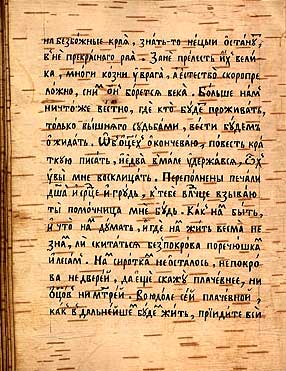 на безбожные края, знать-то нецыи останꙋ,
в' не прекраснаго рая. Зане прелесть их вели
ка, многи козни у врага, а естество скоропре
ложно, с ни он борется века. Больше нам
ничто же вестно, где кто буде проживать,
только вышняго судьбами, вести будем
ожидать. Ѡб ѡцех окончеваю, повесть кра
ткую писать, и едва вмале удержався, Ѡх
увы мне восклицать. Переполнены печали
дша и срце и грудь, к тебе влчце взываю
ты помочница мне будь. Как на быть,
и что на думать, и где на жить весма не
зна, ли скитаться без покрова по речюшка
и лесам. На сиротка не осталось, ни покро
ва ни дверей, да еще скажу плачевнее, ни
ѡцов ни мтрей. Во юдоле сей плачевной,
как в дальнейше буде жить, приидите вси